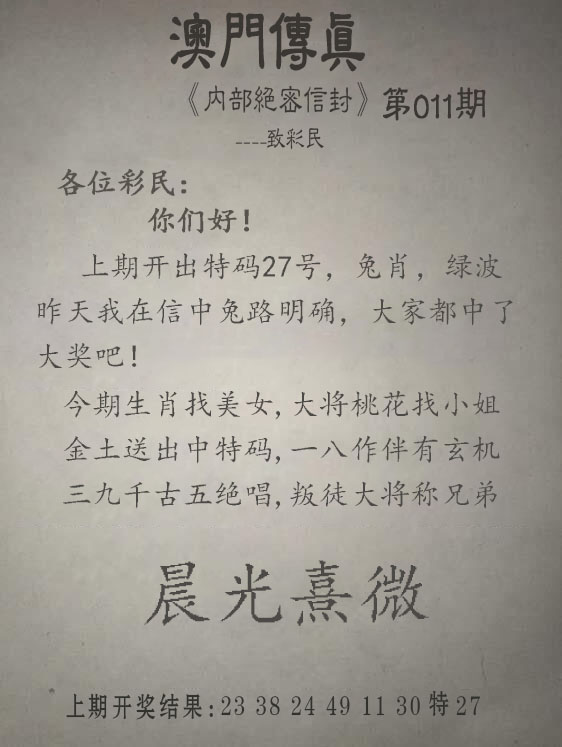 澳門傳眞
《内部絕密信封》第011期
----致彩民
各位彩民：
你们好！
上期开出特码27号，兔肖，绿波
昨天我在信中兔路明确，大家都中了
大奖吧！
今期生肖找美女,大将桃花找小姐
金土送出中特码,一八作伴有玄机
三九千古五绝唱,叛徒大将称兄弟
晨光熹微
上期开奖结果:23 38 24 49 11 30 特27